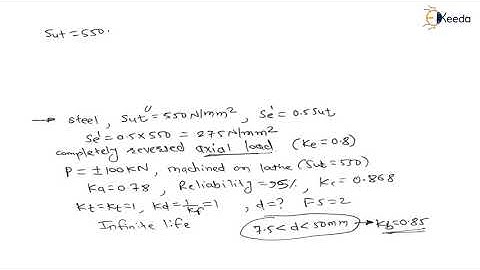 Keeda
Sut = 550.
→ steel, Sut = 550 N/mm², Se' = 0.5 Sut
Se' = 0.5 x 550 = 275 N/mm²
completely reversed axial load (Ke = 0.8)
P = ±100 KN, machined on lathe (Sut = 550)
Ka = 0.78, Reliability = 95%, Kc = 0.868
Kt = Kt = 1, Kd = 1/Kf = 1, d = ? FS = 2
Infinite life
7.5 < d < 50mm → Kb = 0.85